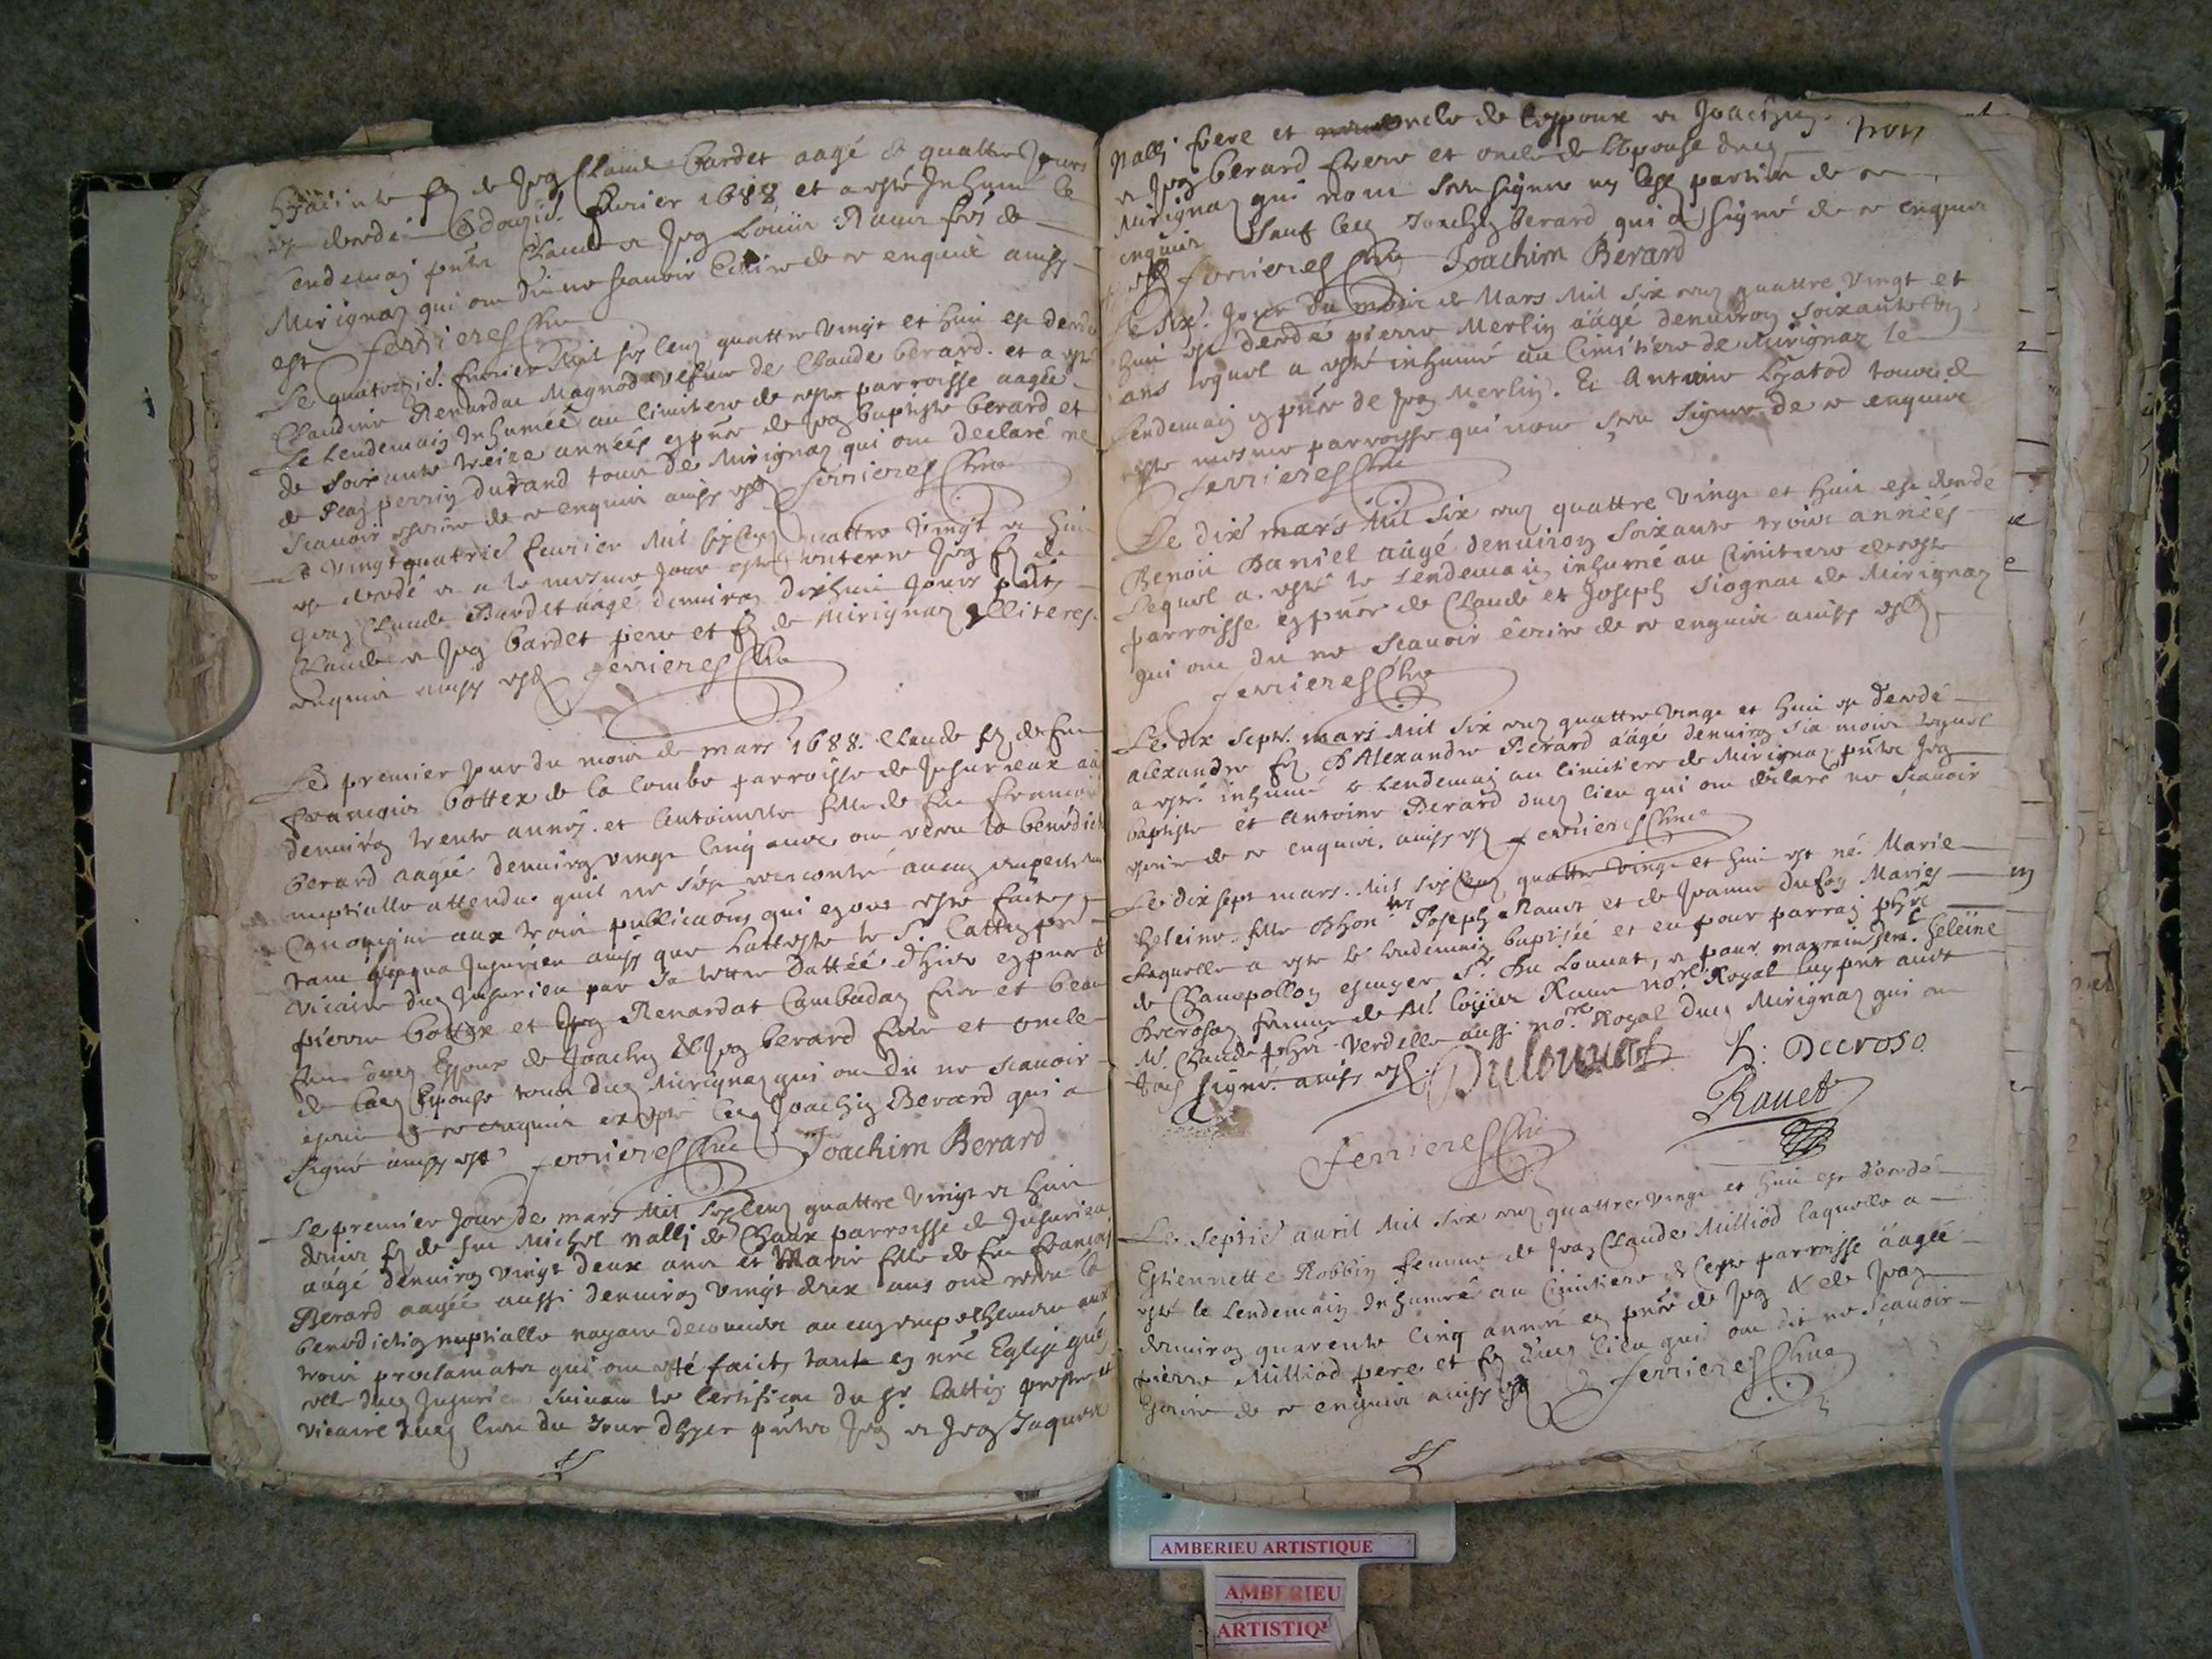 Hyacinte fz de Jeaz Claude Bardet aagé de quattre Jours
est decedé douzie. feurier 1688 et a esté Inhumé le
Lendemaiz Claude et Jeaz Louiis
Mirignaz qui ont dit ne scauoir Ecrire de ce enquis ainsy
est ferrieres Cure
Le quatorzie. feurier Mil six cens quattre Vingt et huit est decedé
Claudine Renardat Magnod vefue de Claude berard. et a esté
Le Lendemaiz Inhumée au Cimitiere de ceste parroisse aagée
de soixante treize années ez pñce de Jeaz baptiste berard et
de perriz durand tous de Mirignaz qui ont declaré ne
scauoir escrire de ce enquis ainsy est ferrieres Cure
Le Vingt quatrie feurier Mil six cens quattre Vingt et huit
est decedé et a le mesme Jour esté enterré Jeaz fz de
Jeaz Claude Bardet aâgé denuiroz dixhuit Jours pñts
Claude et Jeaz bardet pere et fz de Mirignaz illiteres.
enquis ainsy est ferrieres Cure
Le premier Jour du mois de mars 1688. Claude fz de feu
francois bottex de la Combe parroisse de Jusurieux aa
denuiroz trente années. et Antoinette fille de feu francois
berard aagée denuiroz vingt Cinq ans ont receu la benedict
nuptialle attendu quil ne sest rencontré aucuz empeschem
Canonique aux trois publicaons qui ez ont esté faites
tant Jusurieu ainsy que Latteste le Sr. Cattiz pre
vicaire dudz Jusurieu par sa lettre dattée dhier ez pñce de
pierre bottex et Jeaz Renardat Cambadaz frere et beau
frere dudz Espoux de Joachiz & Jeaz berard frere et oncle
de Ladz Espouse tous dudz Mirignaz qui ont dit ne scauoir
escrire de ce enquis excepté ledz Joachiz Berard qui a
signé ainsy est ferrieres Cure Joachim Berard
Le premier Jour de mars Mil six cens quattre Vingt et huit
denis fz de feu Michel nallj de Chaux parroisse de Jusurieu
aâgé denuiroz vingt deux ans et Marie fille de feu francois
Berard aagée aussi denuiroz vingt deux ans ont receu la
benedictioz nuptialle nayant decouuert aucuz empechement aux
trois proclamats qui ont esté faicts tant ez nre Eglise quez
celle dudz Jusurieu suiuant le Certificat du Sr Cattiz prestre et
vicaire dudz lieu du Jour dhyer pñts Jeaz et Jeaz Jaques
nallj frere et oncle de lespoux et Joachiz
et Jeaz berard frere et oncle de Lépouse dudz
Mirignaz qui nont sceu signer nz lesd parties de ce
enquis sauf ledz Joachiz berard qui a signé de ce enquis
ferrieres Cure Joachim Berard
Le six. Jour du mois de Mars Mil six cens quattre Vingt et
huit est decedé pierre Merliz aâgé denuiroz soixante
ans lequel a esté inhumé au Cimitiere de Mirignaz le
Lendemaiz ez pñce de Jeaz Merliz. Et Antoine Chatod tous de
cette mesme parroisse qui nont sceu signer de ce enquis
ferrieres Cure
Le dix mars Mil six cens quattre Vingt et huit est decedé
Benoit Daniel aâgé denuiroz soixante trois années
Lequel a esté le Lendemaiz inhumé au Cimitiere de ceste
parroisse ez pñce de Claude et Joseph Siognat de Mirignaz
qui ont dit ne scauoir ecrire de ce enquis ainsy est
ferrieres Cure
Le dix Sept. mars Mil six cens quattre Vingt et huit est decedé
alexandre fz DAlexandre Berard aâgé denuiroz six mois lequel
a esté inhumé le Lendemaiz au Cimitiere de Mirignaz pñts Jeaz
baptiste et Antoine Berard dudz lieu qui ont declaré ne scauoir
escrire de ce enquis. ainsy est ferrieres Cure
Le dix sept mars. Mil six cens quattre Vingt et huit est né Marie
heleine fille Dhon. Joseph Rauet et de Jeanne dufoy Mariez
Laquelle a esté le lendemaiz baptisée et eu pour parraiz
de Champolloz escuyer Sr. Du Louuat, et pour marraine heleine
Decrosaz femme de Mr. loüis Raue nore. Royal luy pñt auec
Mr. Claude Verdelle aussi nore. Royal dudz Mirignaz qui ont
tous signé. ainsy est. Dulouuat h: Decroso
Rauet
ferrieres Cure
Le Septie auril Mil six cens quattre vingt et huit est decedé
Estiennette Robbiz femme de Jeaz Claude Milliod laquelle a
esté le Lendemaiz Inhumée au Cimitiere de Ceste parroisse aâgée
denuiroz quarente Cinq année ez pñce de Jeaz & de Jeaz
pierre Milliod pere et fz dudz lieu qui ont dit ne scauoir
Escrire de ce enquis ainsy est ferrieres Cure
AMBERIEU ARTISTIQUE
AMBERIEU
ARTISTIQU